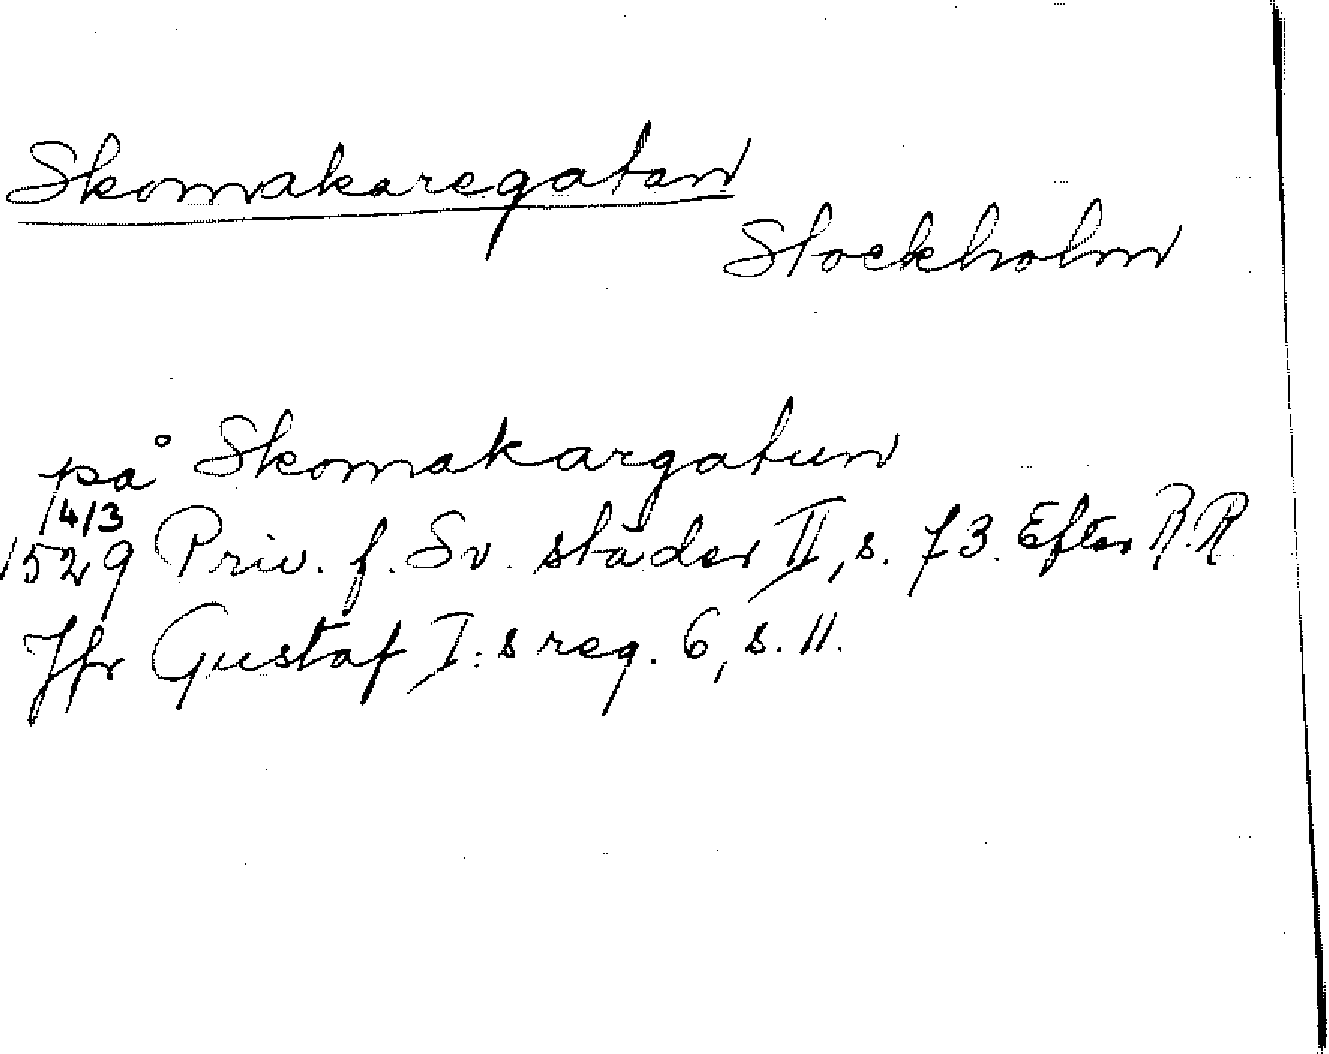 Skomakaregatan
Stockholm
på Skomakargatun
14/3
1529 Priv. f. Sv. städer II, s. 73. Efter R.R
Jfr Gustaf I:s reg. 6, s. 11.